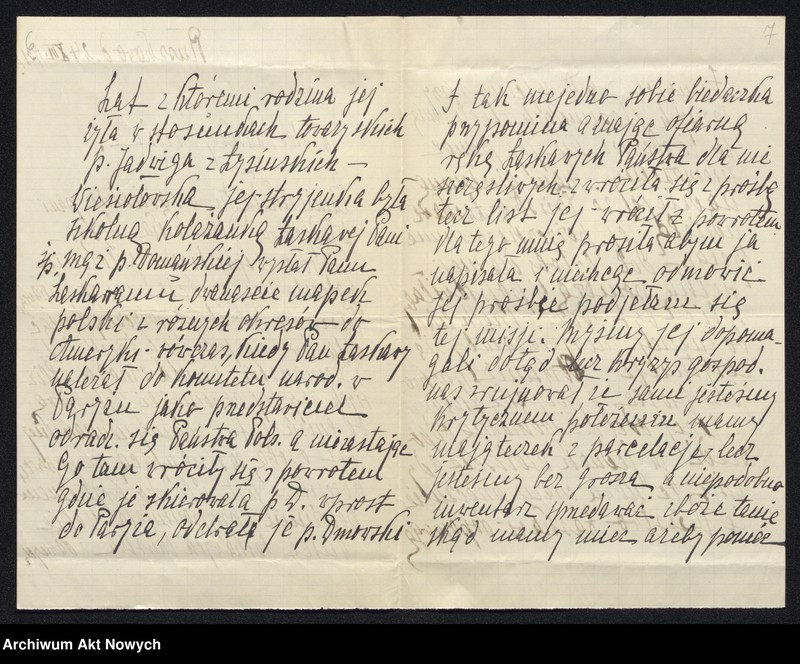 6
7
Lat z któremi rodzina jej
żyła w stosunkach towarzyskich
p. Jadwiga z Łysinskich –
Wiesiołowska jej stryjenka była
szkolną koleżanką Łaskawej Pani
śp. mąż p. Domańskiej wysłał Panu
Łaskawemu dwanaście mapek
polski z różnych okresów do
Ameryki wowczas, kiedy Pan Łaskawy
należał do komitetu narod. w
Paryżu jako predstawiciel
odradz. się Państwa Pols. a niezastając
Go tam wróciły się z powrotem
gdzie je skierowała p D. wprost
do Paryża, odebrał je p. Dmowski
I tak niejedno sobie biedaczka
przypomina a znając ofiarną
ręką Łaskawych Państwa dla nie
szczęśliwych zwróciła się z prośbą
lecz list jej wrócił z powrotem
dla tego mnie prosiła abym ja
napisała i niechcąc odmowić
jej prośbie podjęłam się
tej misji. Myśmy jej dopoma-
gali dotąd lecz kryzys gospod.
nas zrujnował że sami jesteśmy
krytycznem położeniu mamy
majateczek z parcelacje, lecz
jesteśmy bez grosza a niepodobna
inwentarz spredawać zboże tanie
skąd mamy miec ażeby pomóc
Archiwum Akt Nowych